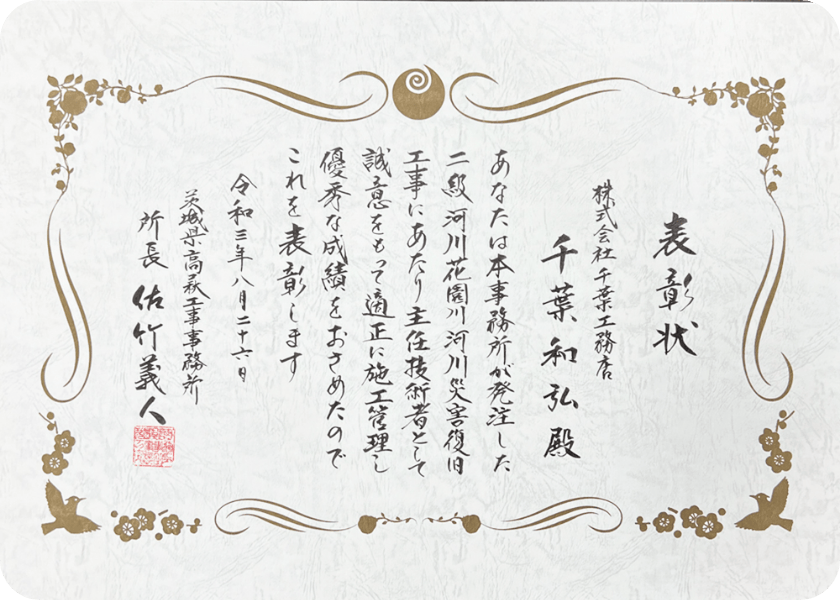 表彰状
株式会社千葉工務店
千葉和弘殿
あなたは本事務所が発注した
二級河川花園川河川災害復旧
工事にあたり主任技術者として
誠意をもって適正に施工管理し
優秀な成績をおさめたので
これを表彰します
令和三年八月二十六日
茨城県高萩工事事務所
所長 佐竹義人